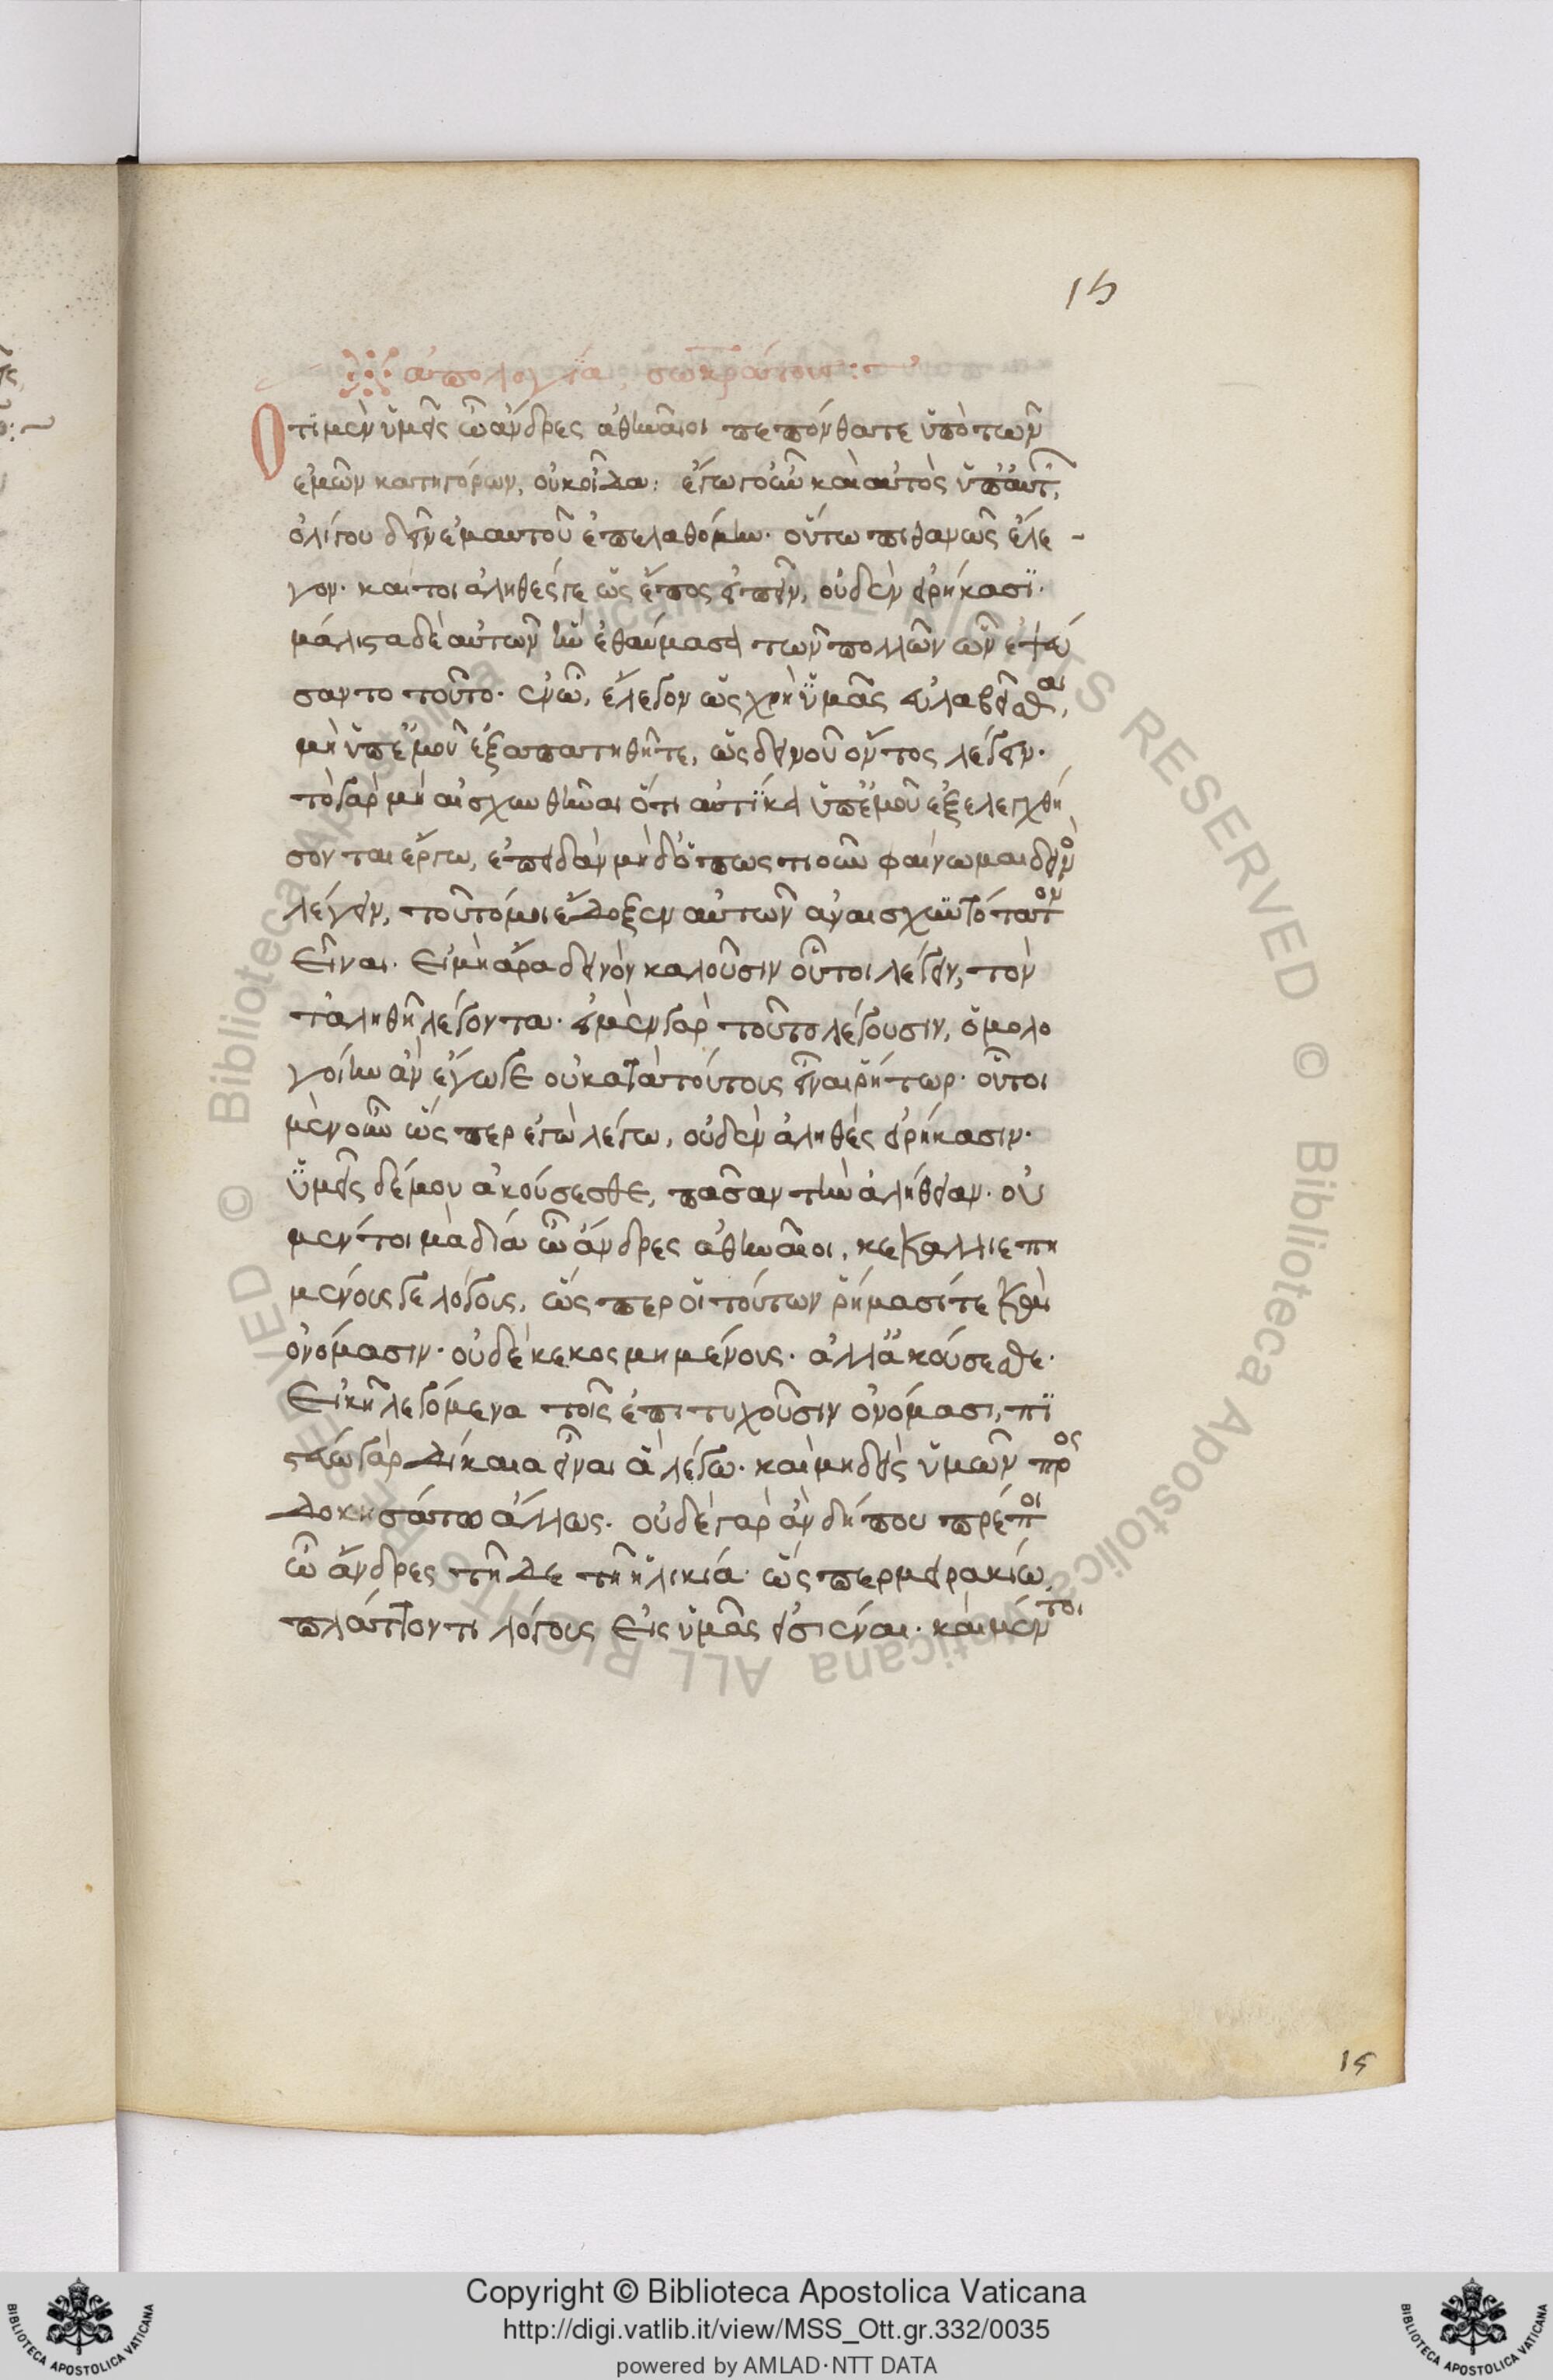 15
ἀπολογία σωκράτους:
Ὅτι μὲν ὑμεῖς ὦ ἄνδρες ἀθηναῖοι πεπόνθατε ὑπὸ τῶν
ἐμῶν κατηγόρων, οὐκ οἶδα· ἐγὼ γοῦν καὶ αὐτὸς ὑπ' αὐτ
ὀλίγου δεῖν ἐμαυτοῦ ἐπελαθόμην. οὕτω πιθανῶς ἔλε-
γον. καίτοι ἀληθές γε ὡς ἔπος εἰπεῖν, οὐδὲν εἰρήκασι.
μάλιστα δὲ αὐτῶν ἓν ἐθαύμασα τῶν πολλῶν ὧν ἐψεύ
σαντο τοῦτο. ἐν ᾧ, ἔλεγον ὡς χρὴ ὑμᾶς εὐλαβεῖσθαι,
μὴ ὑπ' ἐμοῦ ἐξαπατηθῆτε, ὡς δεινοῦ ὄντος λέγειν.
τὸ γὰρ μὴ αἰσχυνθῆναι ὅτι αὐτίκα ὑπ' ἐμοῦ ἐξελεγχθή
σονται ἔργω, ἐπειδὰν μὴδ' ὅπως τι οῦν φαίνωμαι δεινὸ
λέγειν, τοῦτό μοι ἔδοξεν αὐτῶν ἀναισχυντότατον
εἶναι. εἰ μὴ ἄρα δεινὸν καλοῦσιν οὗτοι λέγειν, τὸν
τἀληθῆ λέγοντα. εἰ μὲν γὰρ τοῦτο λέγουσιν, ὁμολο
γοίην ἂν ἔγωγε οὐ κατὰ τούτους εἶναι ῥήτωρ. οὗτοι
μὲν οὖν ὥσπερ ἐγὼ λέγω, οὐδὲν ἀληθὲς εἰρήκασιν.
ὑμεῖς δέ μου ἀκούσεσθε, πᾶσαν τὴν ἀλήθειαν. οὐ
μέντοι μὰ δία ὦ ἄνδρες ἀθηναῖοι, κεκαλλιεπη
μένους γε λόγους, ὥσπερ οἱ τούτων ῥήμασί τε καὶ
ὀνόμασιν. οὐδὲ κεκοσμημένους. ἀλλ' ἀκούσεσθε.
εἰκῆ λεγόμενα τοῖς ἐπιτυχοῦσιν ὀνόμασι, πι
στεύω γὰρ δίκαια εἶναι ἃ λέγω. καὶ μηδεὶς ὑμῶν προς
δοκησάτω ἄλλως. οὐδὲ γὰρ ἂν δήπου πρέποι
ὦ ἄνδρες τῆδε τῆ ἡλικία. ὥσπερ μειρακίω,
πλάττοντι λόγους εἰς ὑμᾶς εἰσιέναι. καὶ μέντοι
15
Copyright © Biblioteca Apostolica Vaticana
http://digi.vatlib.it/view/MSS_Ott.gr.332/0035
powered by AMLAD·NTT DATA